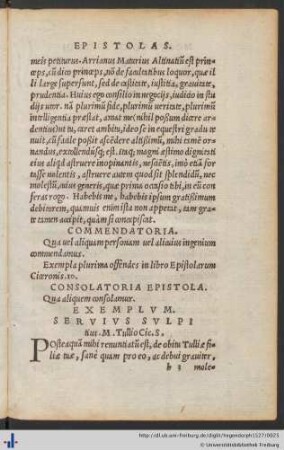 EPISTOLAS.
meis petiturus. Arrianus Maturius Altinatiũ est prin⸗
ceps, cũ dico princeps, nõ de facultatibus loquor, quæ il
li large supersunt, sed de castitate, iustitia, grauitate,
prudentia. Huius ego consilio in negocijs, iudicio in stu
dijs utor. nã plurimũ fide, plurimũ ueritate, plurimũ
intelligentia præstat, amat me (nihil possum dicere ar⸗
dentius) ut tu, caret ambitu, ideo se in equestri gradu te
nuit, cũ facile posset ascẽdere altissimũ, mihi tamẽ or⸗
nandus, excolendusq́; est. itaq; magni æstimo dignitati
eius aliqd astruere inopinantis, nesciẽtis, imò etiã for
tasse nolentis, astruere autem quod sit splendidũ, nec
molestũ, cuius generis, quæ prima occasio tibi, in eũ con
feras rogo. Habebis me, habebis ipsum gratissimum
debitorem, quamuis enim ista non appetat, tam gra⸗
te tamen accipit, quàm si concupiscat.
COMMENDATORIA.
Qua uel aliquam personam uel alicuius ingenium
commendamus.
Exempla plurima offendes in libro Epistolarum
Ciceronis.10.
CONSOLATORIA EPISTOLA.
Qua aliquem consolamur.
EXEMPLVM.
SERVIVS SVLPI
tius. M. Tullio Cic. S.
Posteaquã mihi renuntiatũ est, de obitu Tulliæ fi⸗
liæ tuæ, sanè quam pro eo, ac debui grauiter,
b 3 mole⸗
http://dl.ub.uni-freiburg.de/diglit/hegendorph1527/0025
© Universitätsbibliothek Freiburg